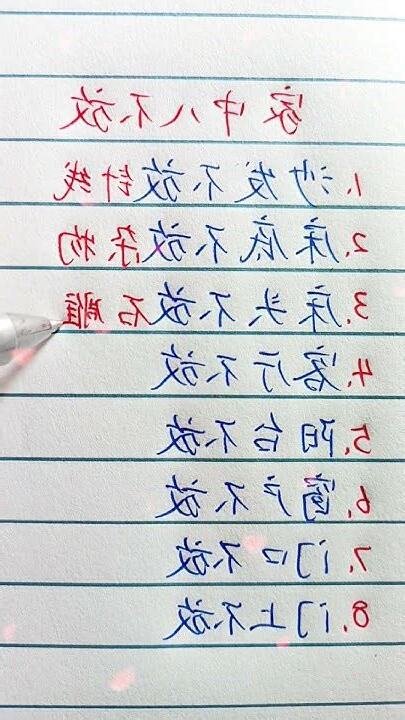 家中八不放
1.沙发不放针线
2.床底不放杂物
3.床头不放石雕
4.客厅不放
5.阳台不放
6.窗户不放
7.门口不放
8.门上不放